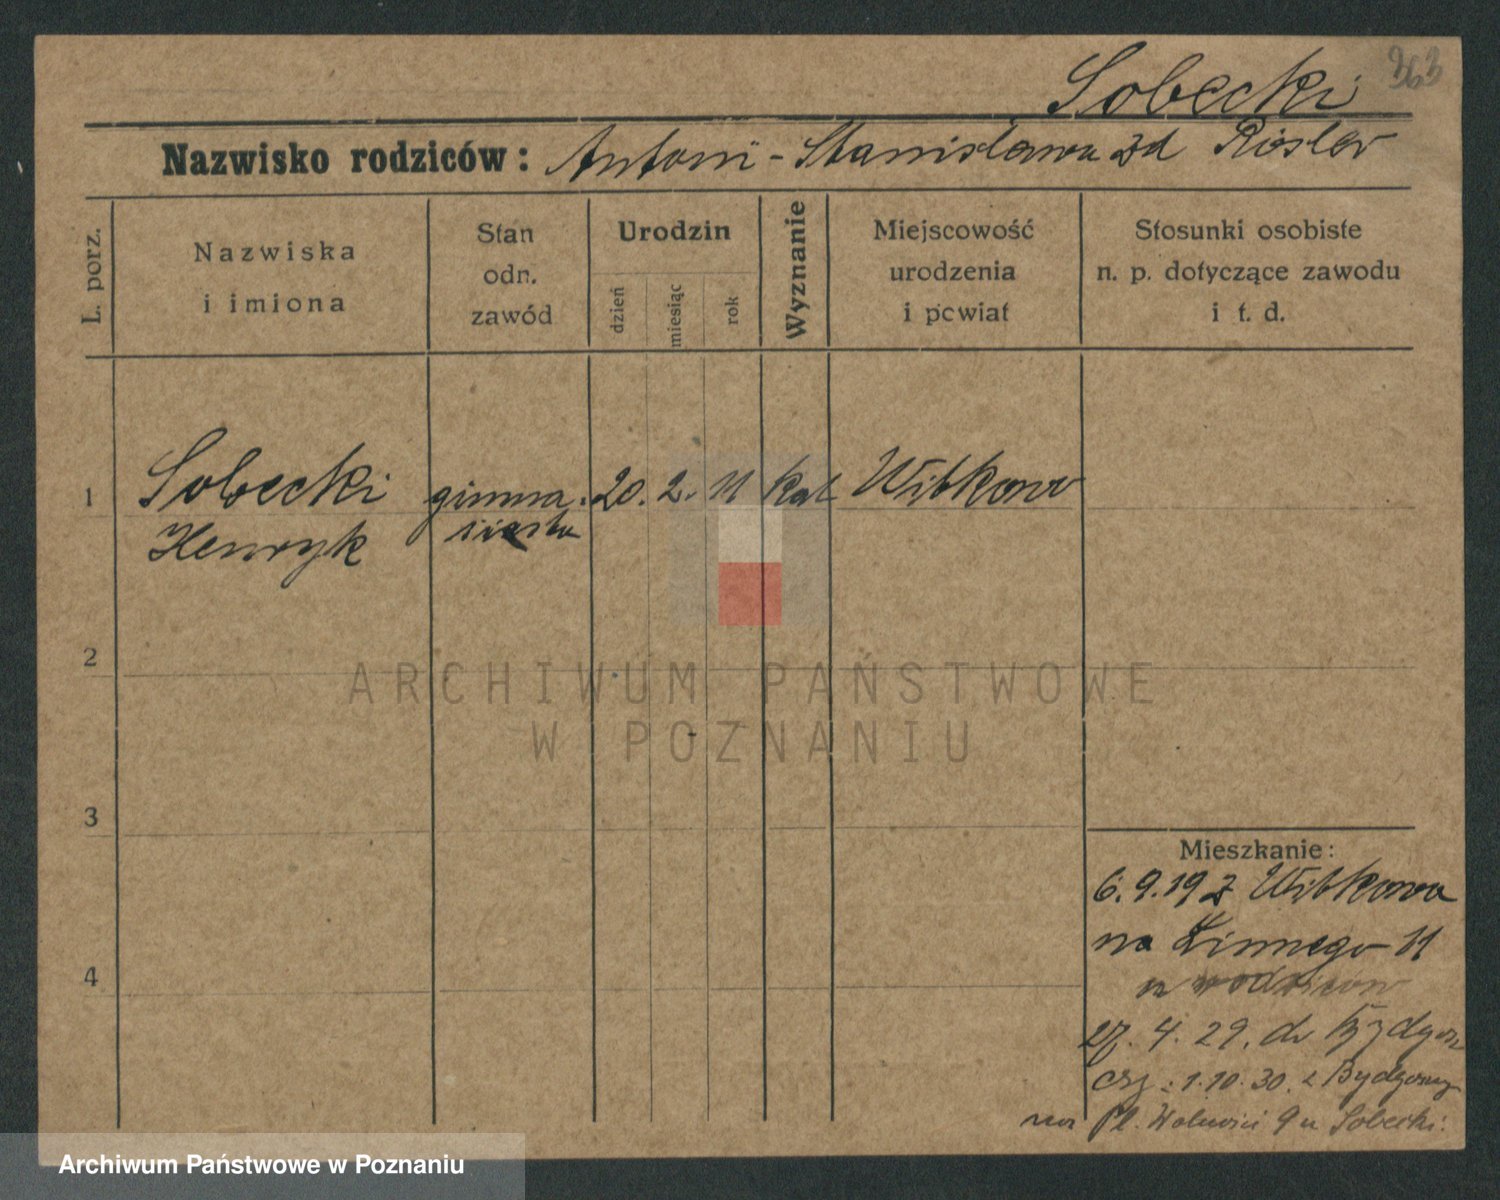 Sobecki 363
Nazwisko rodziców: Antoni - Stanisława zd Rösler
L. porz.
Nazwiska
i imiona
Stan
odn.
zawód
Urodzin
dzień
miesiąc
rok
Wyznanie
Miejscowość
urodzenia
i powiat
Stosunki osobiste
n. p. dotyczące zawodu
i t. d.
1 Sobecki gimna. 20. 2. 11 kat Witkowo
Henryk siasta
2
ARCHIWUM PAŃSTWOWE
W POZNANIU
3
4
Mieszkanie:
6.9.19 z Witkowa
na 11
u rodziców
27. 4. 29. do Bydgosz
1.10.30. z Bydgoszy
na Pl. Wolności 9 u Sobecki.
Archiwum Państwowe w Poznaniu